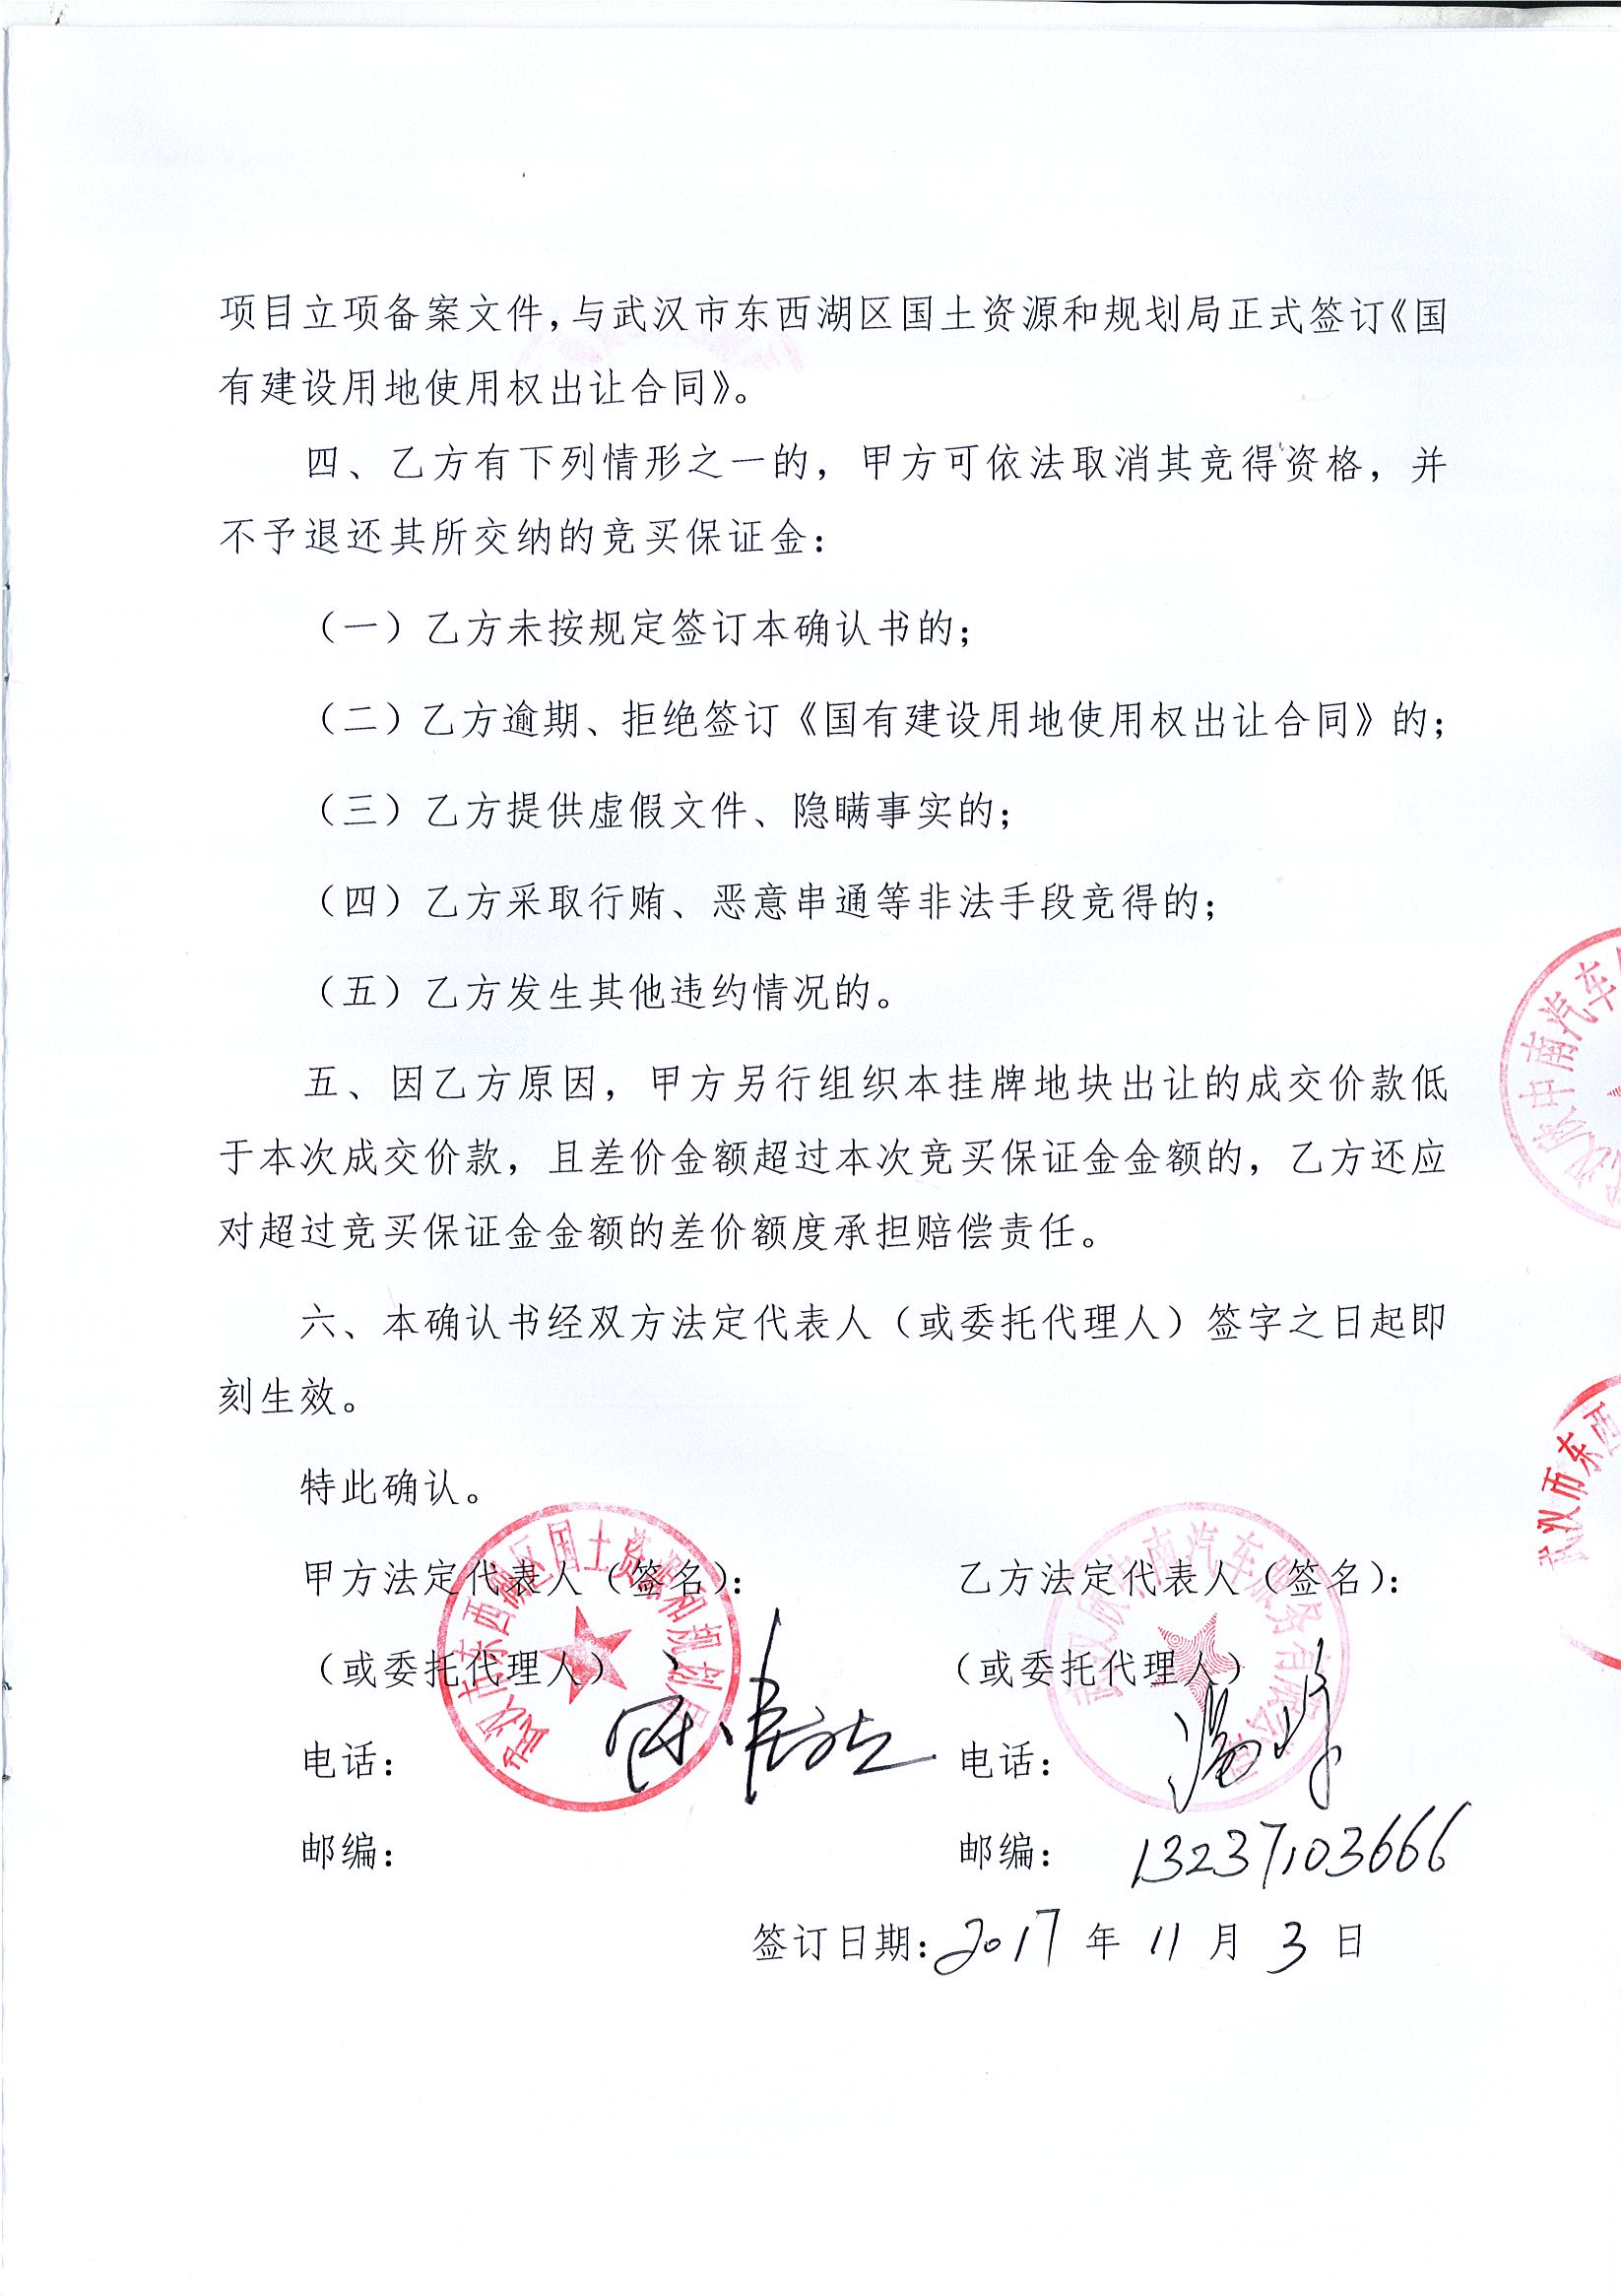 项目立项备案文件，与武汉市东西湖区国土资源和规划局正式签订《国
有建设用地使用权出让合同》。
四、乙方有下列情形之一的，甲方可依法取消其竞得资格，并
不予退还其所交纳的竞买保证金：
（一）乙方未按规定签订本确认书的；
（二）乙方逾期、拒绝签订《国有建设用地使用权出让合同》的；
（三）乙方提供虚假文件、隐瞒事实的；
（四）乙方采取行贿、恶意串通等非法手段竞得的；
（五）乙方发生其他违约情况的。
五、因乙方原因，甲方另行组织本挂牌地块出让的成交价款低
于本次成交价款，且差价金额超过本次竞买保证金金额的，乙方还应
对超过竞买保证金金额的差价额度承担赔偿责任。
六、本确认书经双方法定代表人（或委托代理人）签字之日起即
刻生效。
特此确认。
甲方法定代表人（签名）： 乙方法定代表人（签名）：
（或委托代理人） （或委托代理人）
电话： 电话：
邮编： 邮编： 13237103666
签订日期：2017 年 11 月 3 日
武汉市东西湖区国土资源和规划局
中南汽车
武汉市东西